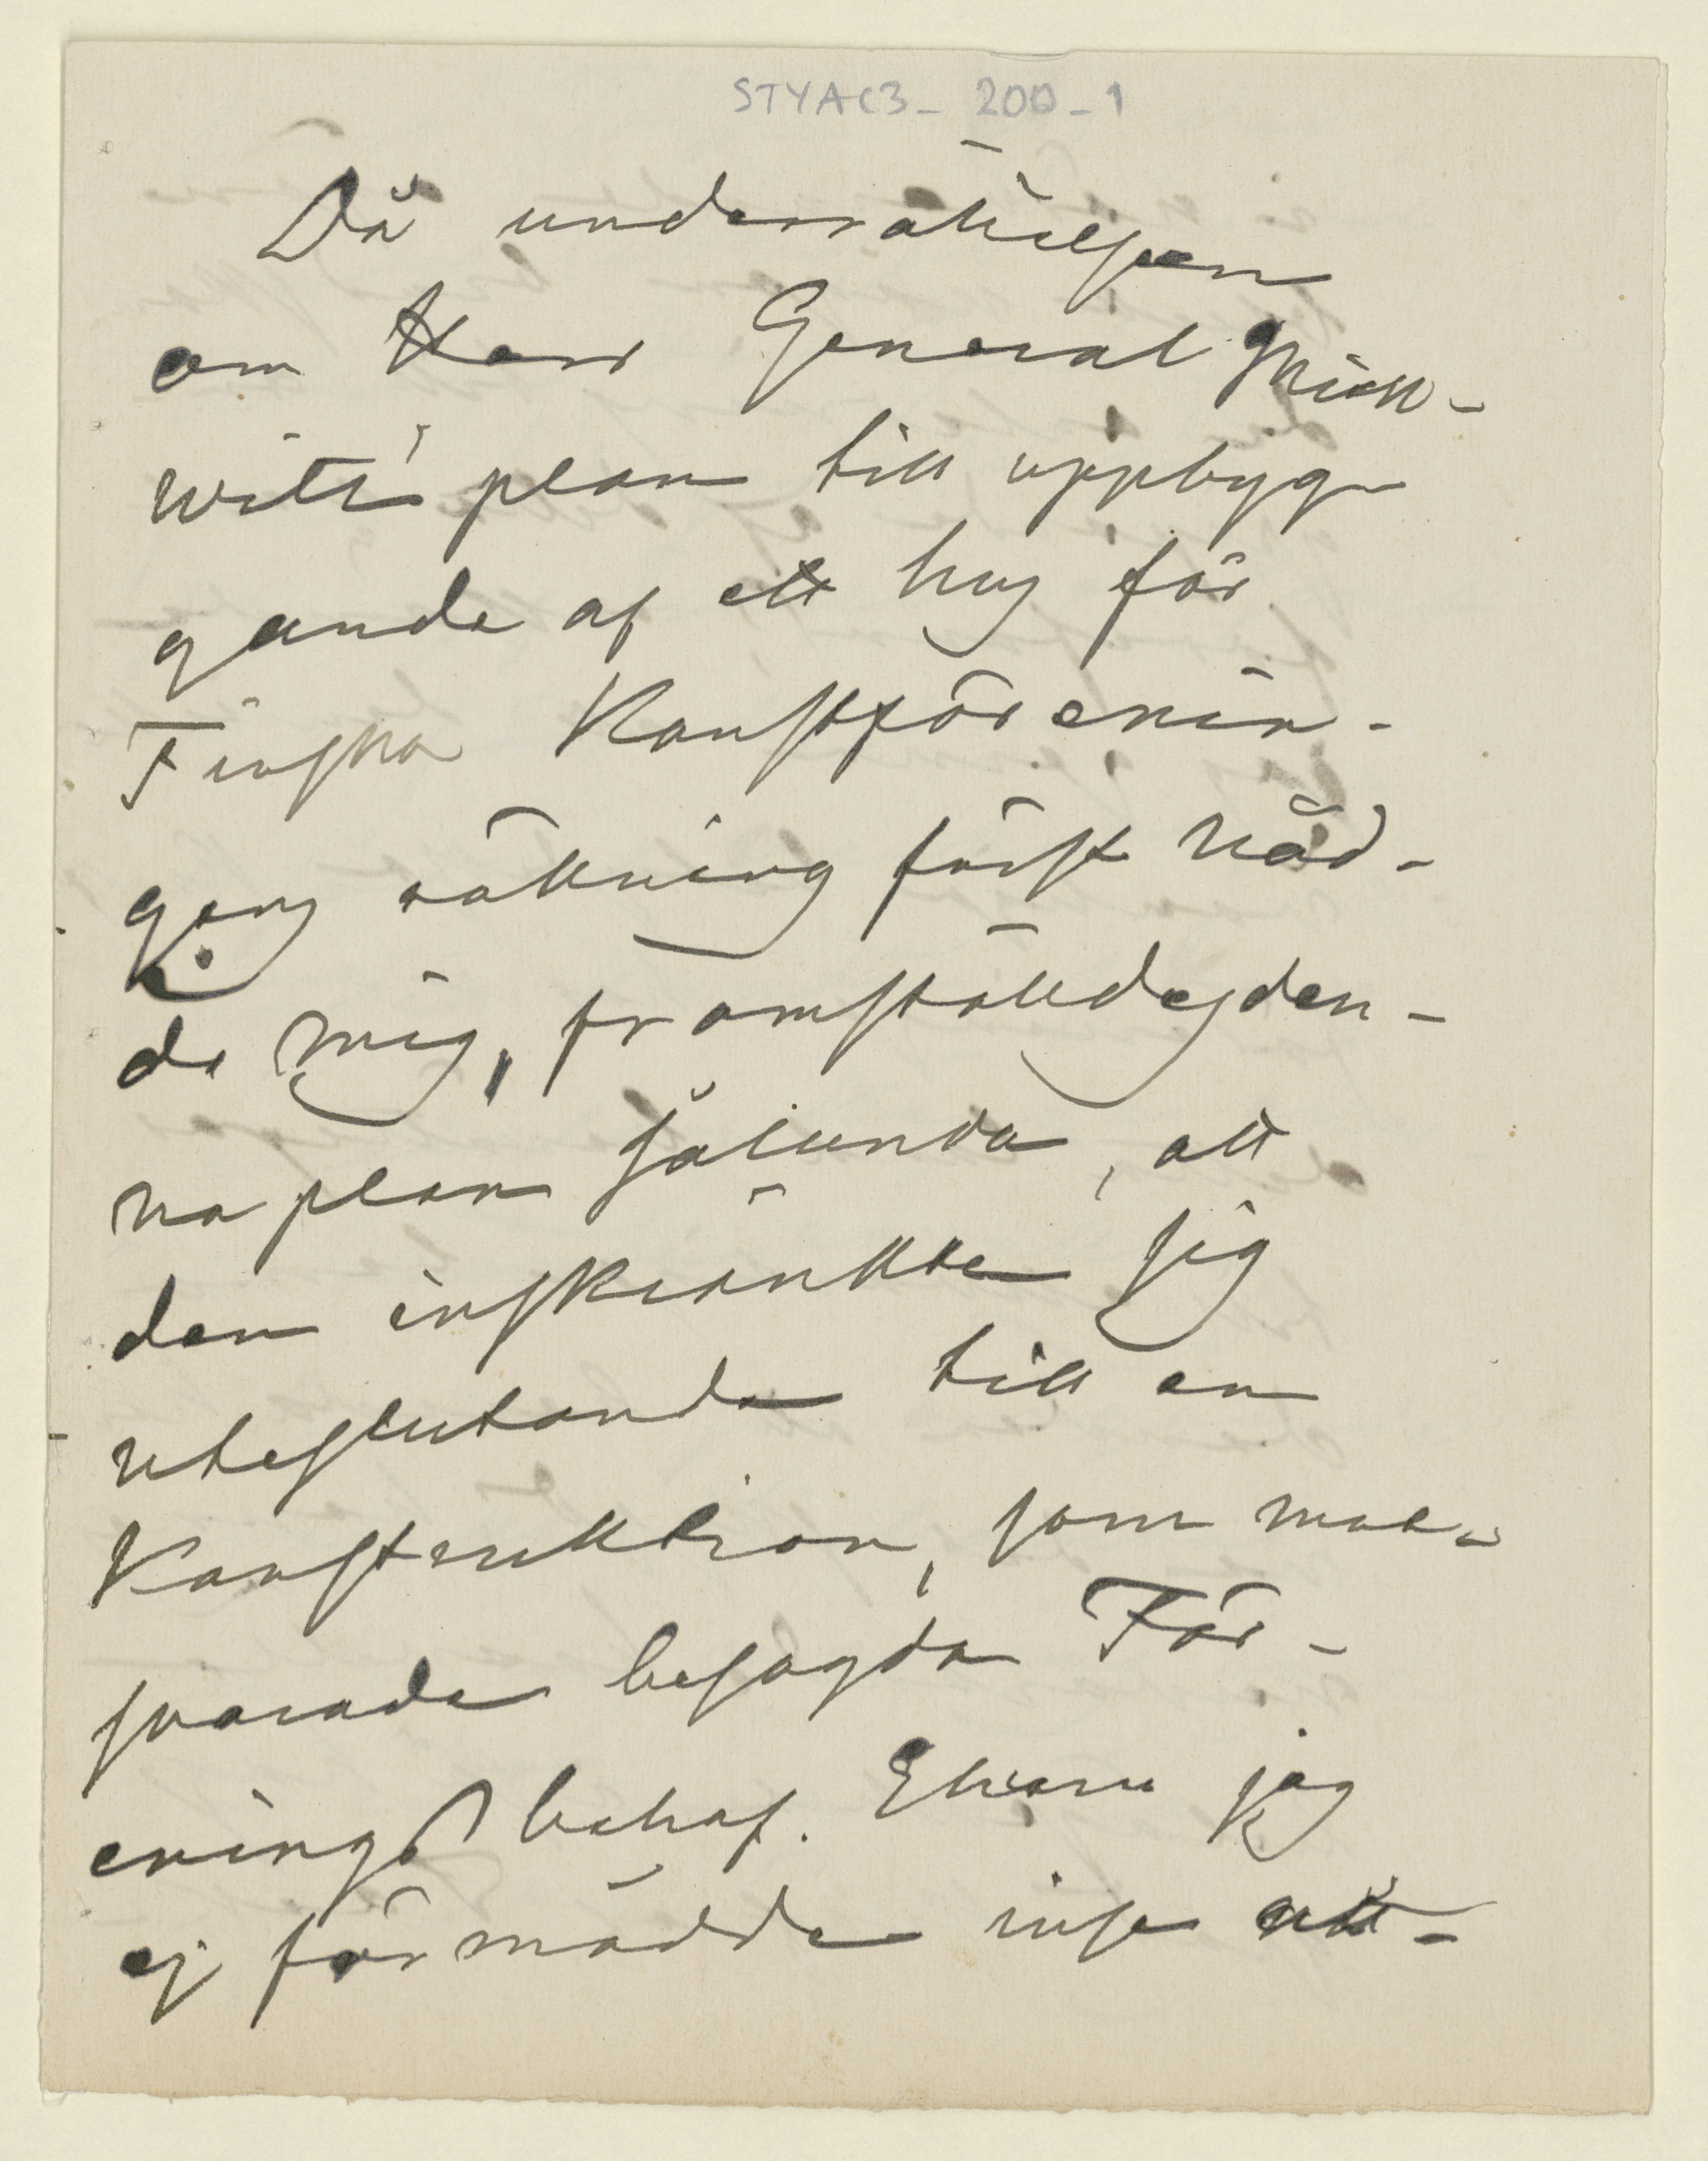 STYAC3_200_1
Då underrättelsen
om Herr General Kiäll-
witz' plan till uppbyg-
gande af ett hus för
Finska Konstförenin-
gens räkning först nåd-
de mig, framställdes den-
na plan sålunda, att
den inskränkte sig
uteslutande till en
Konstruktion, som mot-
svarade besagda För-
enings behof. Ehuru jag
ej förmådde inse